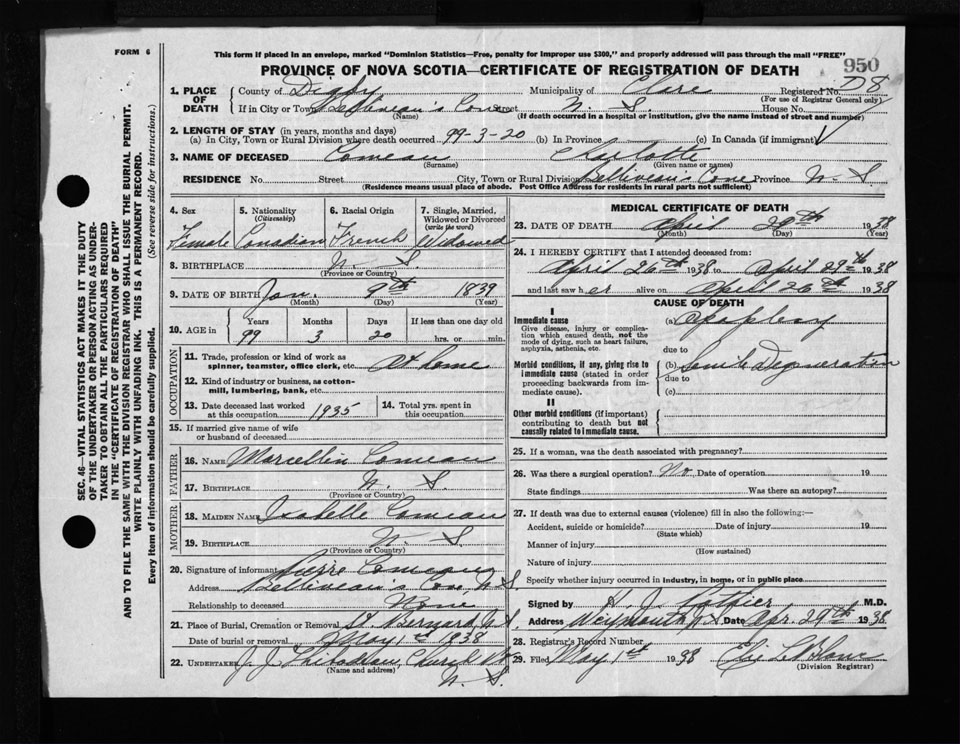 FORM 6
This form if placed in an envelope, marked "Dominion Statistics—Free, penalty for improper use $300," and properly addressed will pass through the mail "FREE"
950
PROVINCE OF NOVA SCOTIA—CERTIFICATE OF REGISTRATION OF DEATH
1. PLACE OF DEATH
County of Digby Municipality of Clare Registered No. D8
(For use of Registrar General only)
If in City or Town Belliveau's Cove Street N. S. House No.
(Name) (If death occurred in a hospital or institution, give the name instead of street and number)
2. LENGTH OF STAY (in years, months and days)
(a) In City, Town or Rural Division where death occurred 99-3-20 (b) In Province (c) In Canada (if immigrant)
3. NAME OF DECEASED Comeau Charlotte
(Surname) (Given name or names)
RESIDENCE No. Street City, Town or Rural Division Belliveau's Cove Province N. S
(Residence means usual place of abode. Post Office Address for residents in rural parts not sufficient)
4. Sex 5. Nationality (Citizenship) 6. Racial Origin 7. Single, Married, Widowed or Divorced (write the word)
Female Canadian French Widowed
8. BIRTHPLACE N. S.
(Province or Country)
9. DATE OF BIRTH Jan. 9th 1839
(Month) (Day) (Year)
10. AGE in Years Months Days If less than one day old
99 3 20 hrs. or min.
OCCUPATION
11. Trade, profession or kind of work as spinner, teamster, office clerk, etc. At home
12. Kind of industry or business, as cotton-mill, lumbering, bank, etc.
13. Date deceased last worked at this occupation 1935 14. Total yrs. spent in this occupation
15. If married give name of wife or husband of deceased
FATHER
16. NAME Marcellin Comeau
17. BIRTHPLACE N. S.
(Province or Country)
MOTHER
18. MAIDEN NAME Isabelle Comeau
19. BIRTHPLACE N. S
(Province or Country)
20. Signature of informant Pierre Comeau
Address Belliveau's Cove, N S
Relationship to deceased None
21. Place of Burial, Cremation or Removal St. Bernard, N S.
Date of burial or removal May 1st 1938
22. UNDERTAKER J. J. Church
(Name and address) N. S.
MEDICAL CERTIFICATE OF DEATH
23. DATE OF DEATH April 29th 1938
(Month) (Day) (Year)
24. I HEREBY CERTIFY that I attended deceased from:
April 26th 1938 to April 29th 1938
and last saw her alive on April 26th 1938
CAUSE OF DEATH
I
Immediate cause
Give disease, injury or complication which caused death, not the mode of dying, such as heart failure, asphyxia, asthenia, etc.
(a) Apoplexy
due to
Morbid conditions, if any, giving rise to immediate cause (stated in order proceeding backwards from immediate cause).
(b) Senile Degeneration
due to
(c)
II
Other morbid conditions (if important) contributing to death but not causally related to immediate cause.
25. If a woman, was the death associated with pregnancy?
26. Was there a surgical operation? No. Date of operation 19
State findings Was there an autopsy?
27. If death was due to external causes (violence) fill in also the following:—
Accident, suicide or homicide? Date of injury 19
(State which)
Manner of injury
(How sustained)
Nature of injury
Specify whether injury occurred in industry, in home, or in public place
Signed by H. J. Pothier M.D.
Address Weymouth N. S. Date Apr. 29th 1938.
28. Registrar's Record Number
29. Filed May 1st 1938 Eli LeBlanc
(Division Registrar)
SEC. 46—VITAL STATISTICS ACT MAKES IT THE DUTY
OF THE UNDERTAKER OR PERSON ACTING AS UNDER-
TAKER TO OBTAIN ALL THE PARTICULARS REQUIRED
IN THE "CERTIFICATE OF REGISTRATION OF DEATH"
AND TO FILE THE SAME WITH THE DIVISION REGISTRAR WHO SHALL ISSUE THE BURIAL PERMIT.
WRITE PLAINLY WITH UNFADING INK. THIS IS A PERMANENT RECORD.
Every item of information should be carefully supplied. (See reverse side for instructions.)